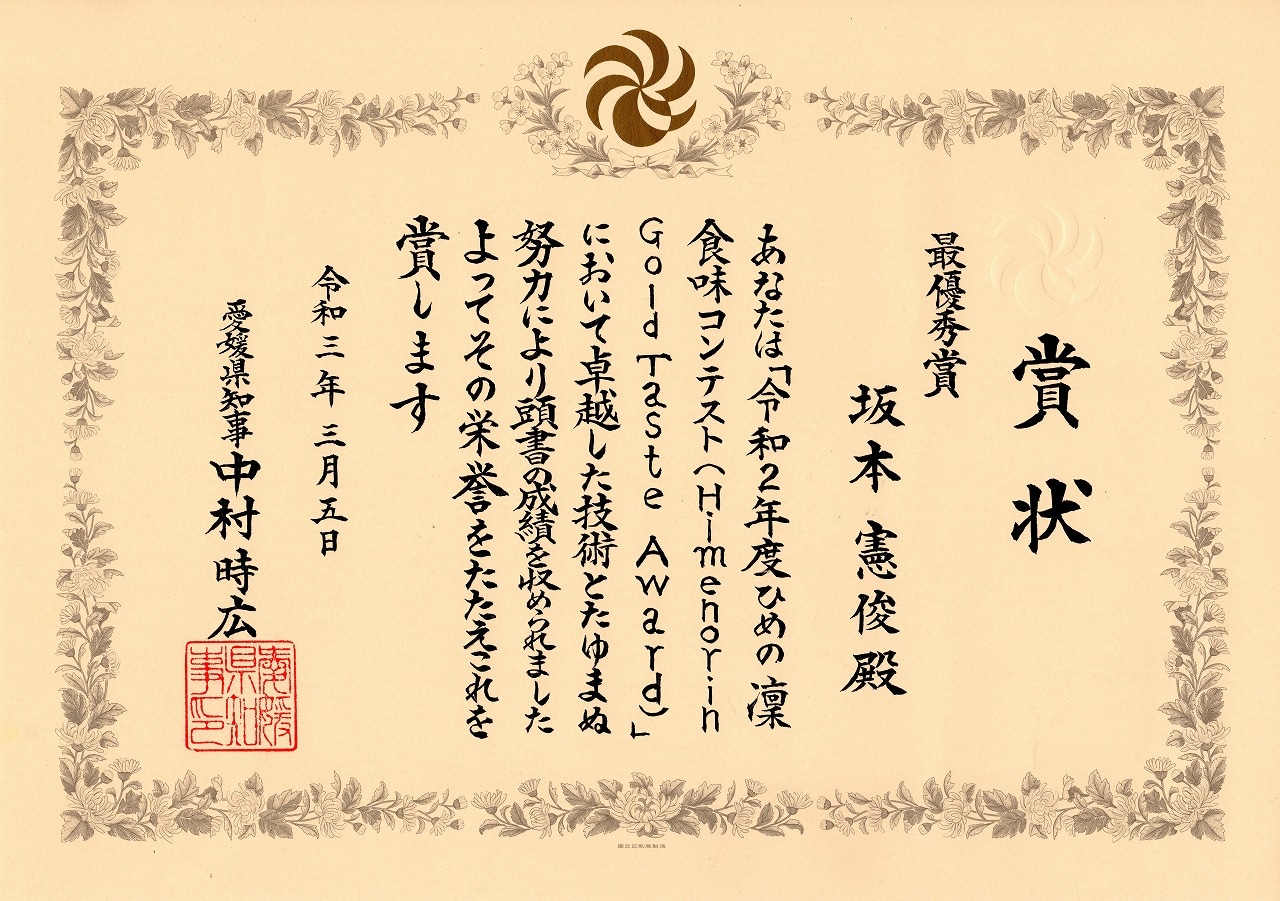 賞状
最優秀賞
坂本憲俊殿
あなたは「令和2年度ひめの凜
食味コンテスト(Himenorin
Gold Taste Award)」
において卓越した技術とたゆまぬ
努力により頭書の成績を収められました
よってその栄誉をたたえこれを
賞します
令和三年三月五日
愛媛県知事中村時広
愛媛県知事印
国立印刷局製造